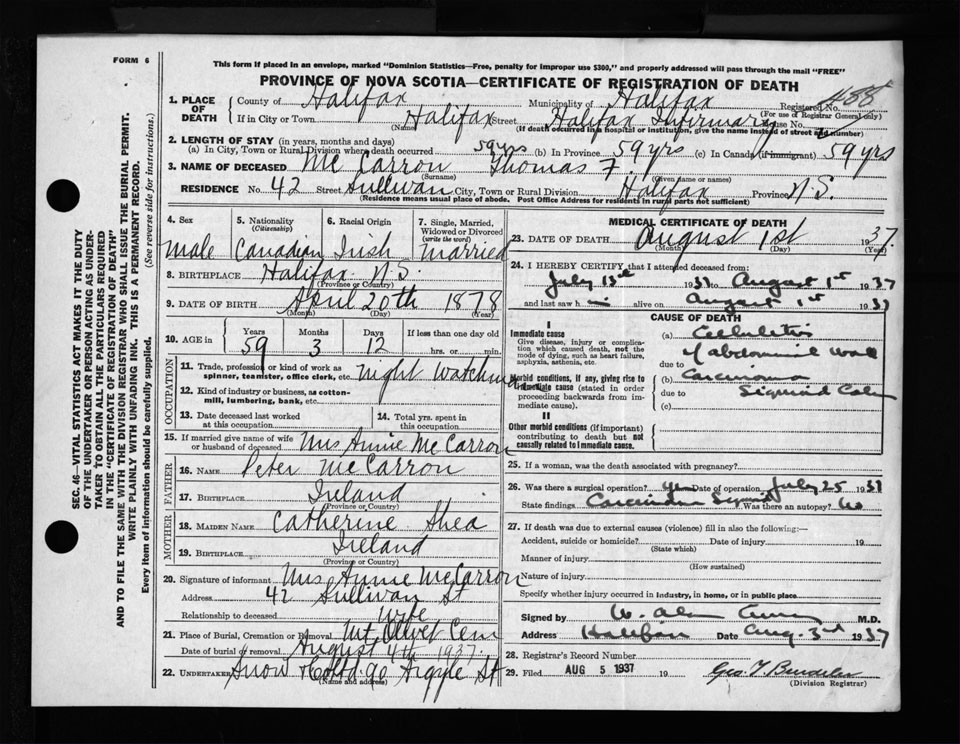 FORM 6
This form if placed in an envelope, marked "Dominion Statistics—Free, penalty for improper use $300," and properly addressed will pass through the mail "FREE"
PROVINCE OF NOVA SCOTIA—CERTIFICATE OF REGISTRATION OF DEATH
SEC. 46—VITAL STATISTICS ACT MAKES IT THE DUTY
OF THE UNDERTAKER OR PERSON ACTING AS UNDER-
TAKER TO OBTAIN ALL THE PARTICULARS REQUIRED
IN THE "CERTIFICATE OF REGISTRATION OF DEATH"
AND TO FILE THE SAME WITH THE DIVISION REGISTRAR WHO SHALL ISSUE THE BURIAL PERMIT.
WRITE PLAINLY WITH UNFADING INK. THIS IS A PERMANENT RECORD.
Every item of information should be carefully supplied. (See reverse side for instructions.)
1. PLACE OF DEATH County of Halifax Municipality of Halifax Registered No.
(For use of Registrar General only)
If in City or Town Halifax Street Halifax Infirmary House No.
(Name) (If death occurred in a hospital or institution, give the name instead of street and number)
2. LENGTH OF STAY (in years, months and days)
(a) In City, Town or Rural Division where death occurred 59 yrs (b) In Province 59 yrs (c) In Canada (if immigrant) 59 yrs
3. NAME OF DECEASED McCarron Thomas F
(Surname) (Given name or names)
RESIDENCE No. 42 Street Sullivan City, Town or Rural Division Halifax Province N.S.
(Residence means usual place of abode. Post Office Address for residents in rural parts not sufficient)
4. Sex 5. Nationality (Citizenship) 6. Racial Origin 7. Single, Married, Widowed or Divorced (write the word)
Male Canadian Irish Married
8. BIRTHPLACE Halifax N.S.
(Province or Country)
9. DATE OF BIRTH April 20th 1878
(Month) (Day) (Year)
10. AGE in Years Months Days If less than one day old
59 3 12 hrs. or min.
OCCUPATION
11. Trade, profession or kind of work as spinner, teamster, office clerk, etc. Night Watchman
12. Kind of industry or business, as cotton-mill, lumbering, bank, etc.
13. Date deceased last worked at this occupation 14. Total yrs. spent in this occupation
15. If married give name of wife or husband of deceased Mrs Annie McCarron
FATHER
16. NAME Peter McCarron
17. BIRTHPLACE Ireland
(Province or Country)
MOTHER
18. MAIDEN NAME Catherine Shea
19. BIRTHPLACE Ireland
(Province or Country)
20. Signature of informant Mrs Annie McCarron
Address 42 Sullivan St
Relationship to deceased Wife
21. Place of Burial, Cremation or Removal Mt Olivet Cem
Date of burial or removal August 4th 1937.
22. UNDERTAKER Snow & Co Ltd 90 Argyle St
(Name and address)
MEDICAL CERTIFICATE OF DEATH
23. DATE OF DEATH August 1st 1937
(Month) (Day) (Year)
24. I HEREBY CERTIFY that I attended deceased from
July 13th 1937 to August 1st 1937
and last saw h im alive on August 1st 1937
CAUSE OF DEATH
I
Immediate cause
Give disease, injury or complication which caused death, not the mode of dying, such as heart failure, asphyxia, asthenia, etc.
(a) Cellulitis
of abdominal wall
due to
Morbid conditions, if any, giving rise to immediate cause (stated in order proceeding backwards from immediate cause).
(b) Carcinoma
due to Sigmoid Colon
(c)
II
Other morbid conditions (if important) contributing to death but not causally related to immediate cause.
25. If a woman, was the death associated with pregnancy?
26. Was there a surgical operation? yes Date of operation July 25 1937
State findings Carcinoma Sigmoid Was there an autopsy? No
27. If death was due to external causes (violence) fill in also the following:—
Accident, suicide or homicide? Date of injury 19
(State which)
Manner of injury
(How sustained)
Nature of injury
Specify whether injury occurred in industry, in home, or in public place
Signed by W. Alan M.D.
Address Halifax Date Aug. 3rd 1937
28. Registrar's Record Number
29. Filed AUG 5 1937 19 Geo.
(Division Registrar)